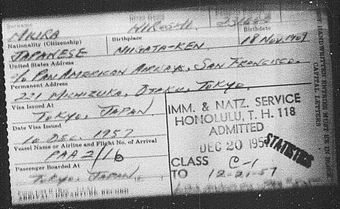 AKIRA HIROSHI
Nationality (Citizenship) Birthplace Birthdate
JAPANESE NIIGATA-KEN 18 NOV. 1909
United States Address
℅ PAN AMERICAN AIRWAYS, SAN FRANCISCO.
Permanent Address
221 MICHIZUKA, OTAKU, TOKYO.
Visa Issued At
TOKYO, JAPAN
Date Visa Issued
10 DEC. 1957
Vessel Name or Airline and Flight No. of Arrival
PAA 2/16
Passenger Boarded At
TOKYO, JAPAN.
ARRIVAL-DEPARTURE RECORD
IMM. & NATZ. SERVICE
HONOLULU, T. H. 118
ADMITTED
DEC 20 1957
CLASS C-1
TO 12-21-57
STATISTICS
CAPITAL LETTERS